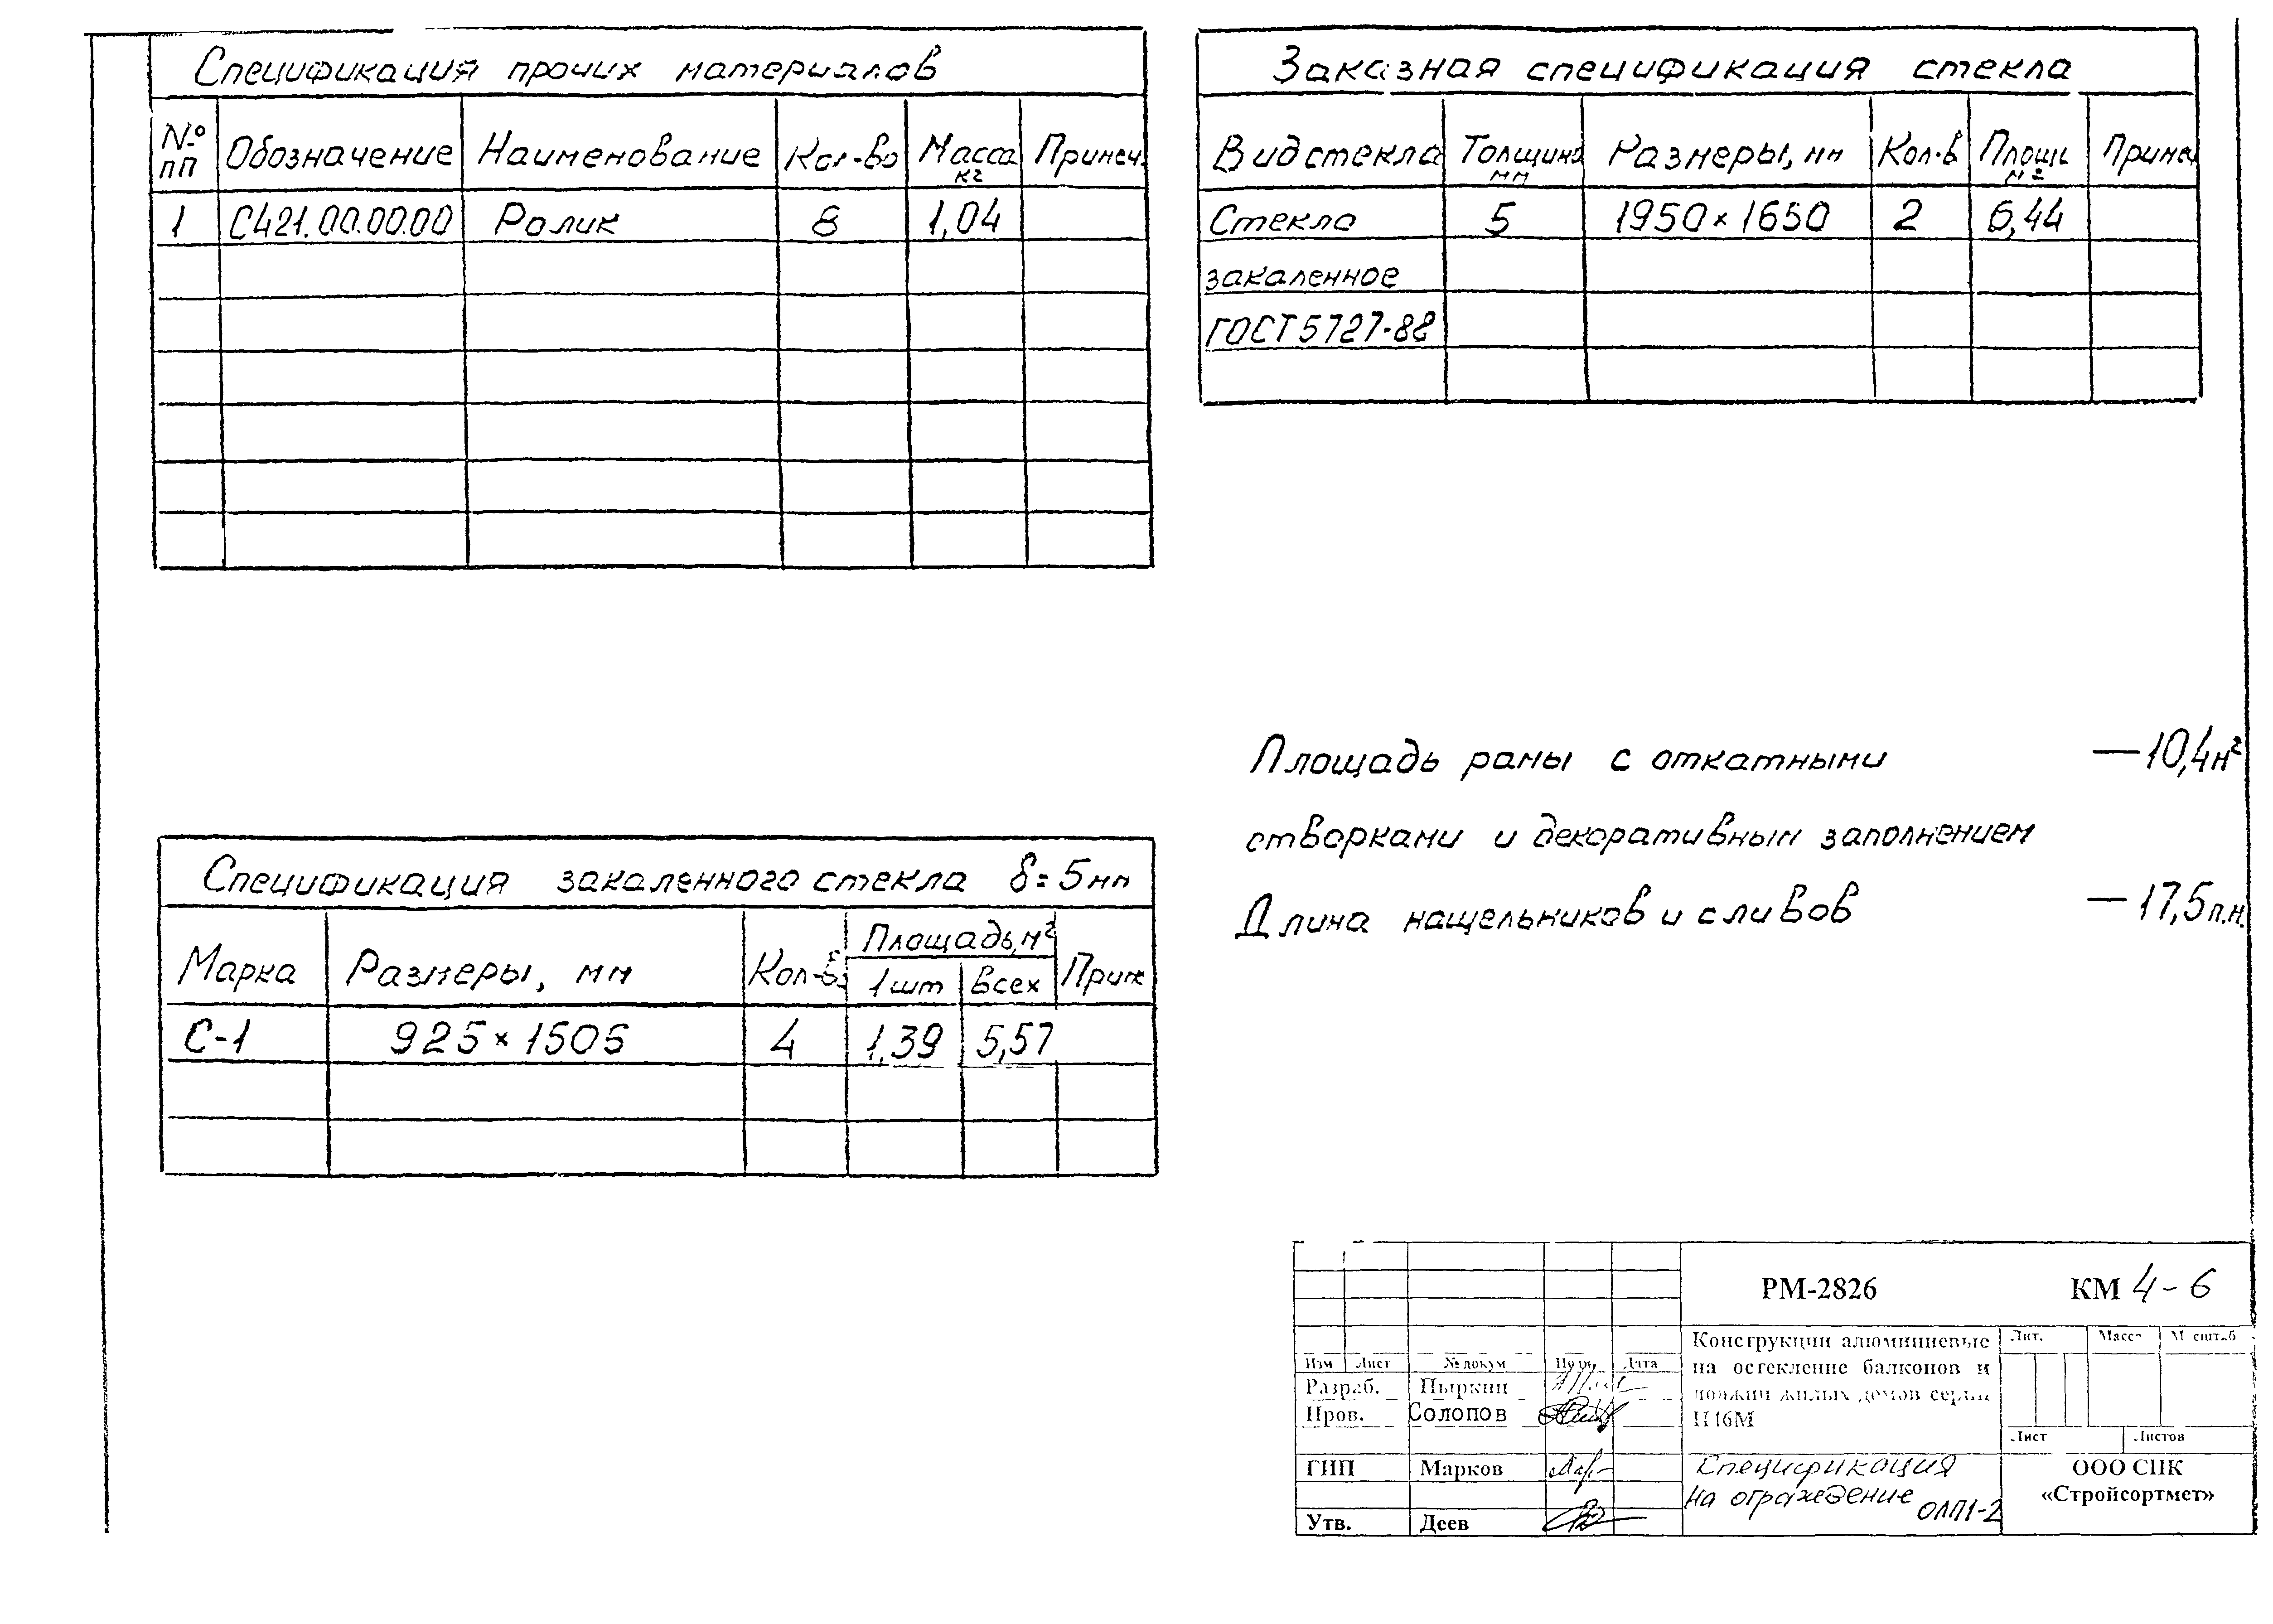 Спецификация прочих материалов
№ пп Обозначение Наименование Кол-во Масса кг Примеч.
1 С421.00.00.00 Ролик 8 1,04
Заказная спецификация стекла
Вид стекла Толщина мм Размеры, мм Кол-в Площ м2 Примеч
Стекло 5 1950×1650 2 6,44
закаленное
ГОСТ 5727-88
Площадь рамы с откатными — 10,4 м²
створками и декоративным заполнением
Длина нащельников и сливов — 17,5 п.м.
Спецификация закаленного стекла δ=5мм
Марка Размеры, мм Кол-в Площадь, м² Прим
1 шт Всех
С-1 925×1505 4 1,39 5,57
РМ-2826 КМ 4-6
Конструкции алюминиевые
на остекление балконов и
лоджий жилых домов серии
П46М
Лит. Масса Масштаб
Изм Лист № докум Подп. Дата
Разраб. Пыркин
Пров. Солопов
Лист Листов
ГИП Марков
Утв. Деев
Спецификация
на ограждение
ОЛП1-2
ООО СПК
«Стройсортмет»